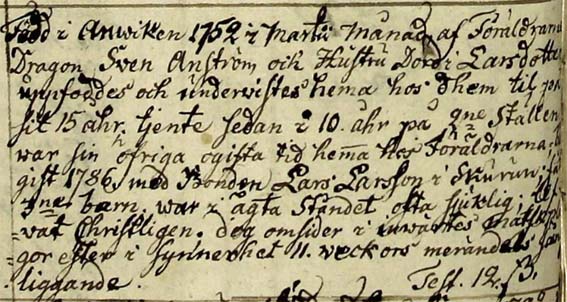 Född i Anwiken 1752 i Martii Månad, af Föräldrarna
Dragon Sven Anström och Hustru Dordi Larsdotter
uppföddes och underwistes hema hos dhem til på
sit 15 åhr. tjente sedan i 10. åhr på gne Ställen
war sin öfriga ogifta tid hema hos Föräldrarna.
gift 1786. med Bonden Lars Larsson i Skuruw:
3ne barn. war i ägta Ståndet ofta sjuklig;
vat Christligen. dog omsider i inwärtes
gor efter i synnerhet 11. veckors merändels
liggande. Test. 12. 13.